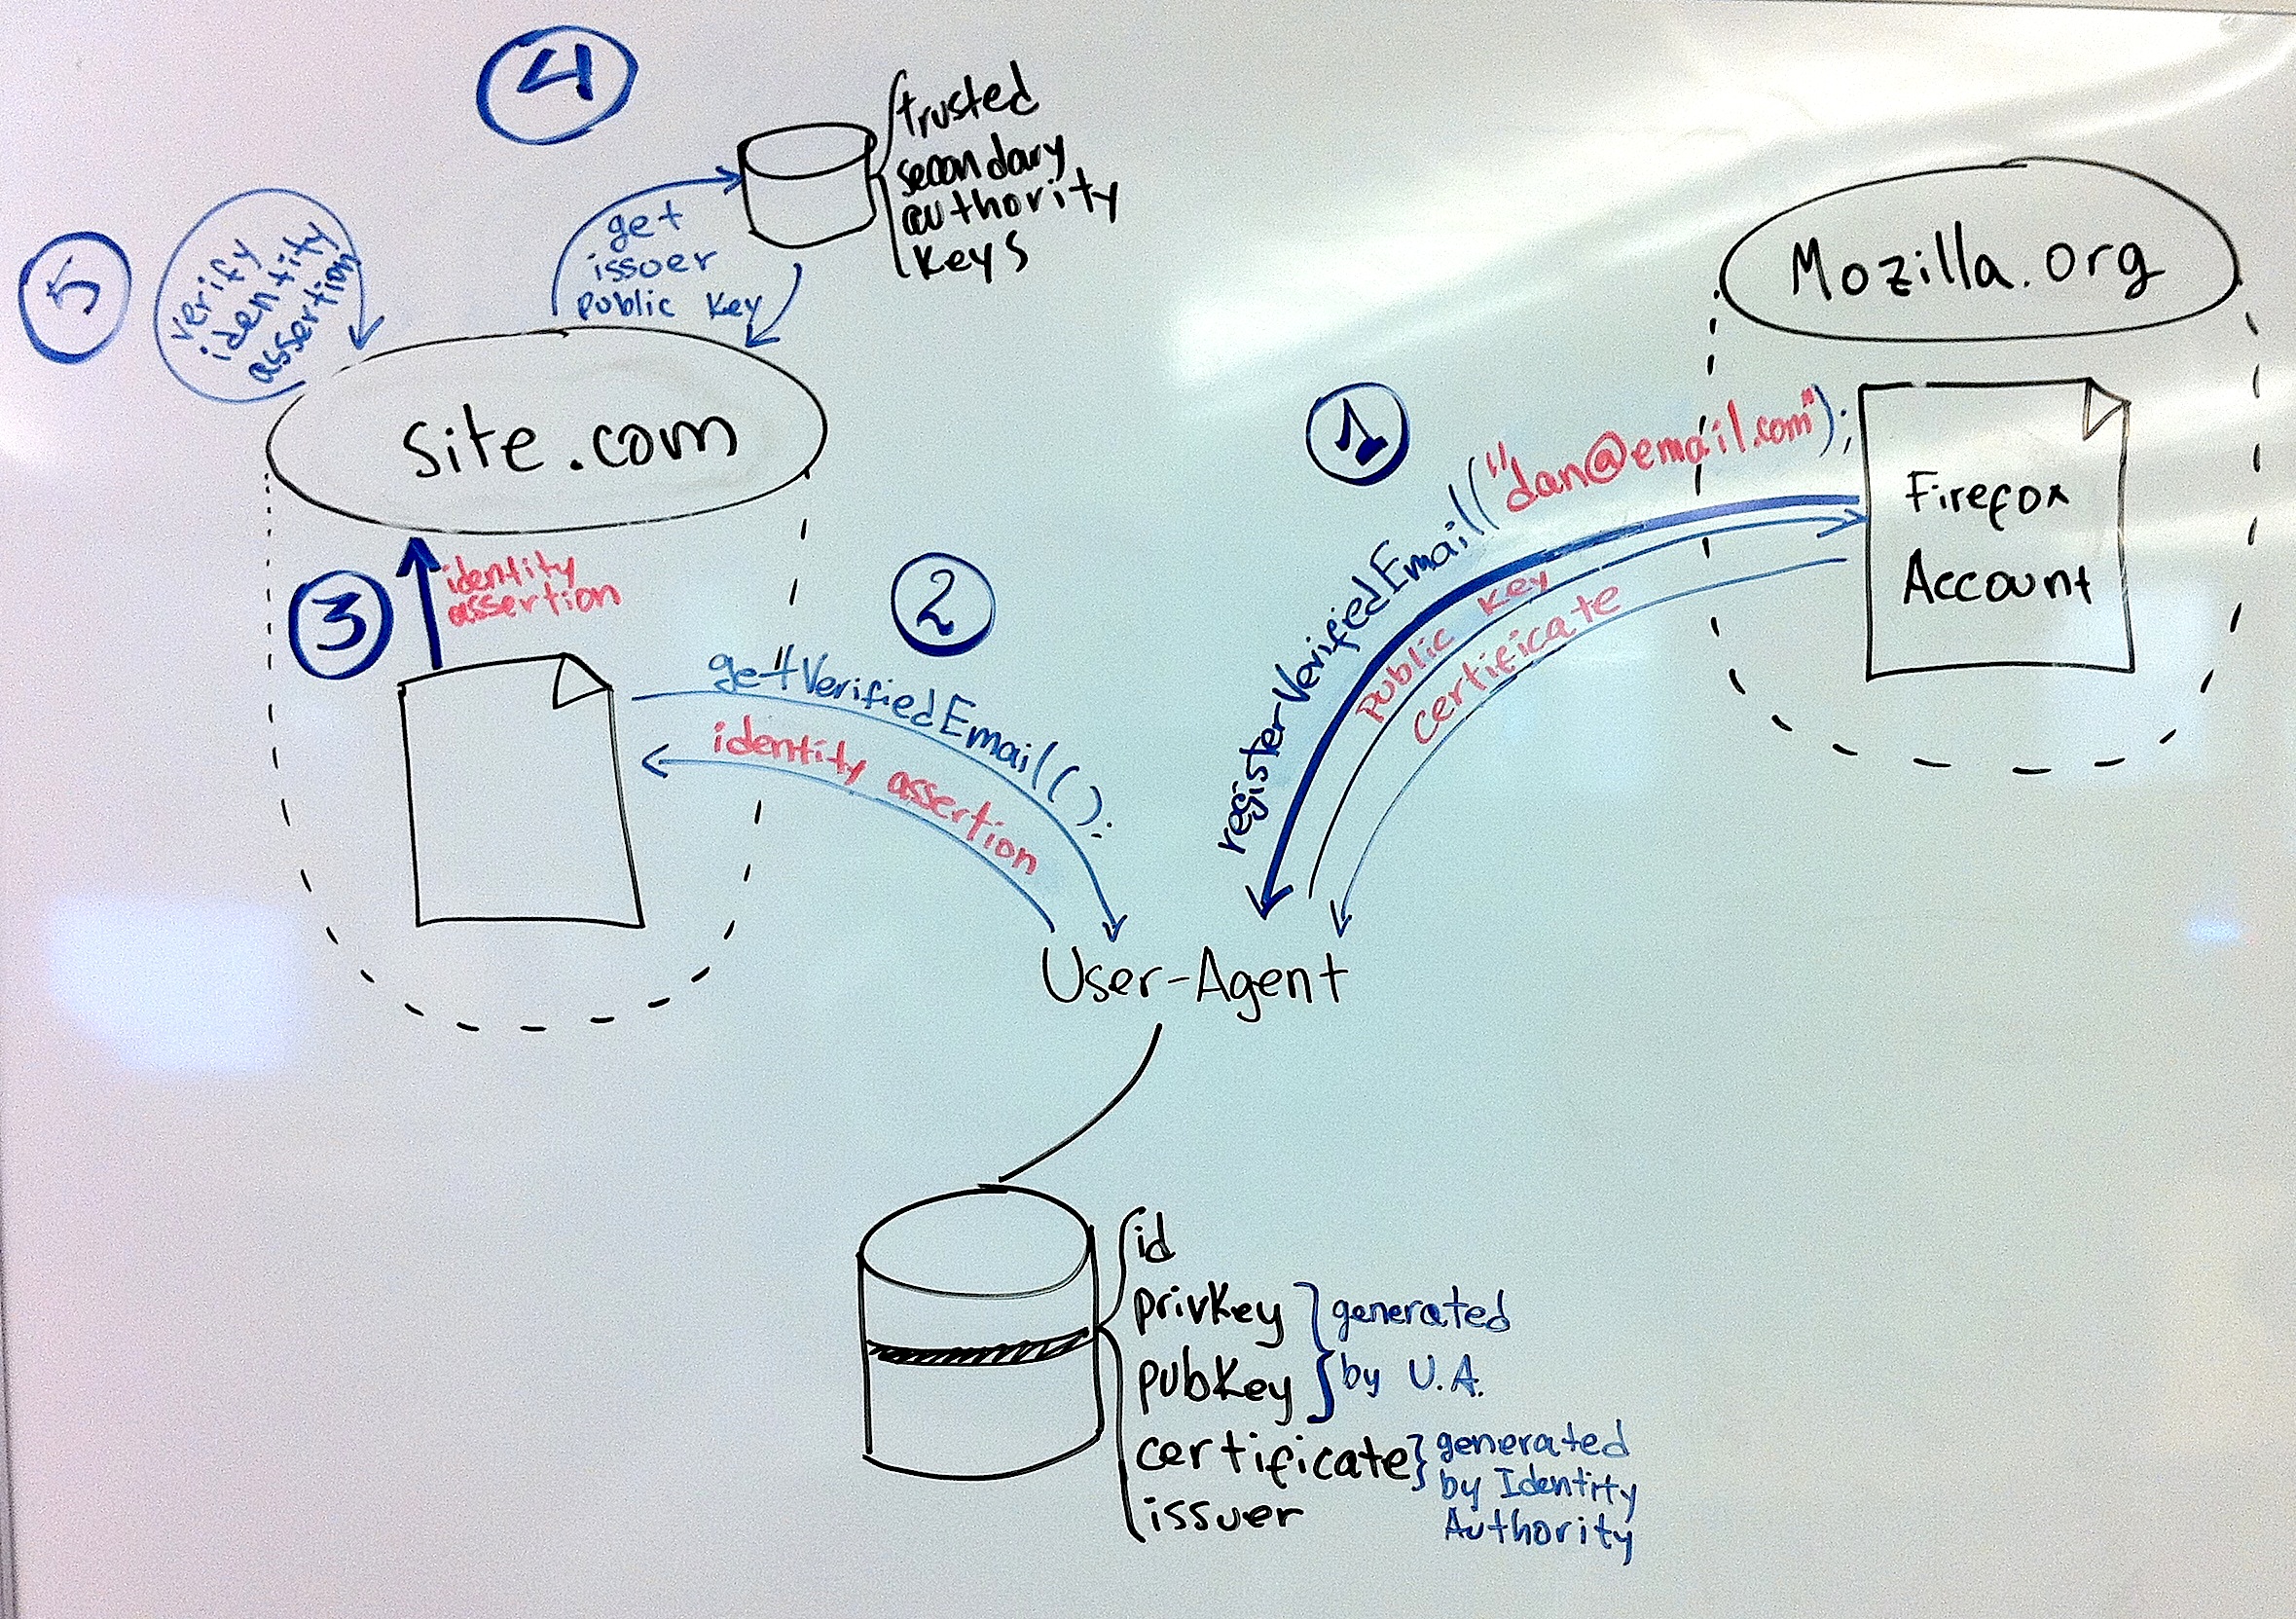 4
trusted
secondary
authority
keys
get
issuer
public key
5
verify
identity
assertion
site.com
Mozilla.org
1
registerVerifiedEmail("dan@email.com");
public key
certificate
Firefox
Account
3
identity
assertion
2
getVerifiedEmail();
identity assertion
User-Agent
id
privKey
pubKey
generated
by U.A.
certificate
issuer
generated
by Identity
Authority